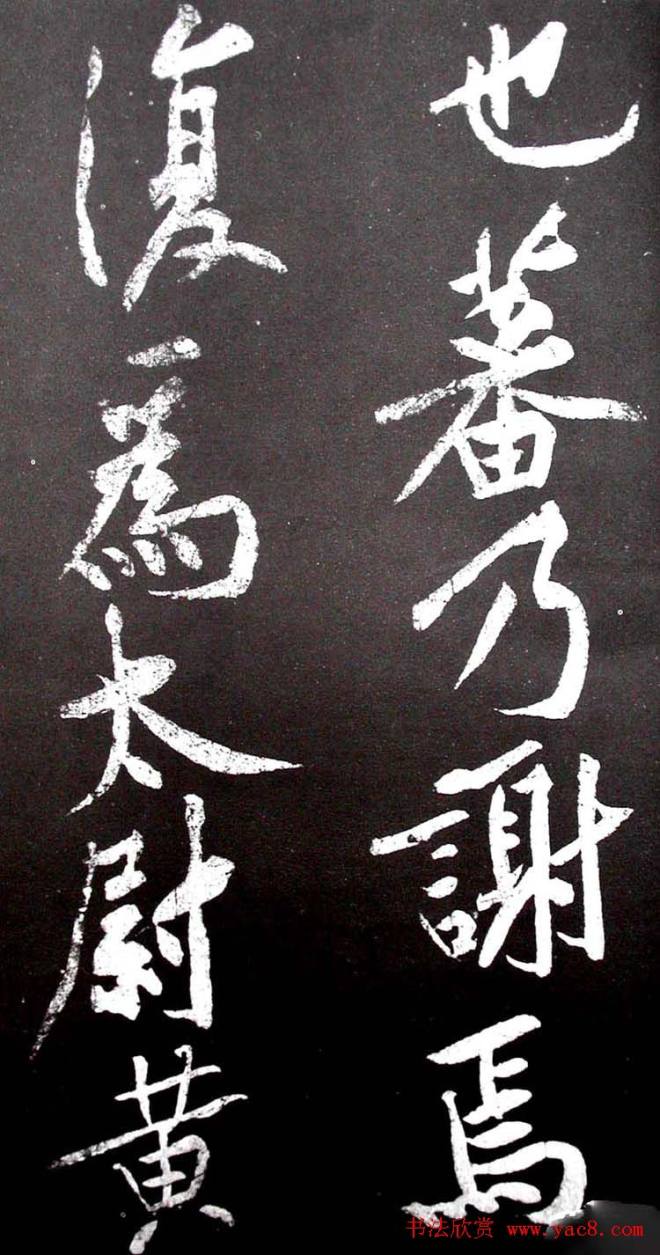 也蕃乃謝焉
復為太尉黄
书法欣赏 www.yac8.com